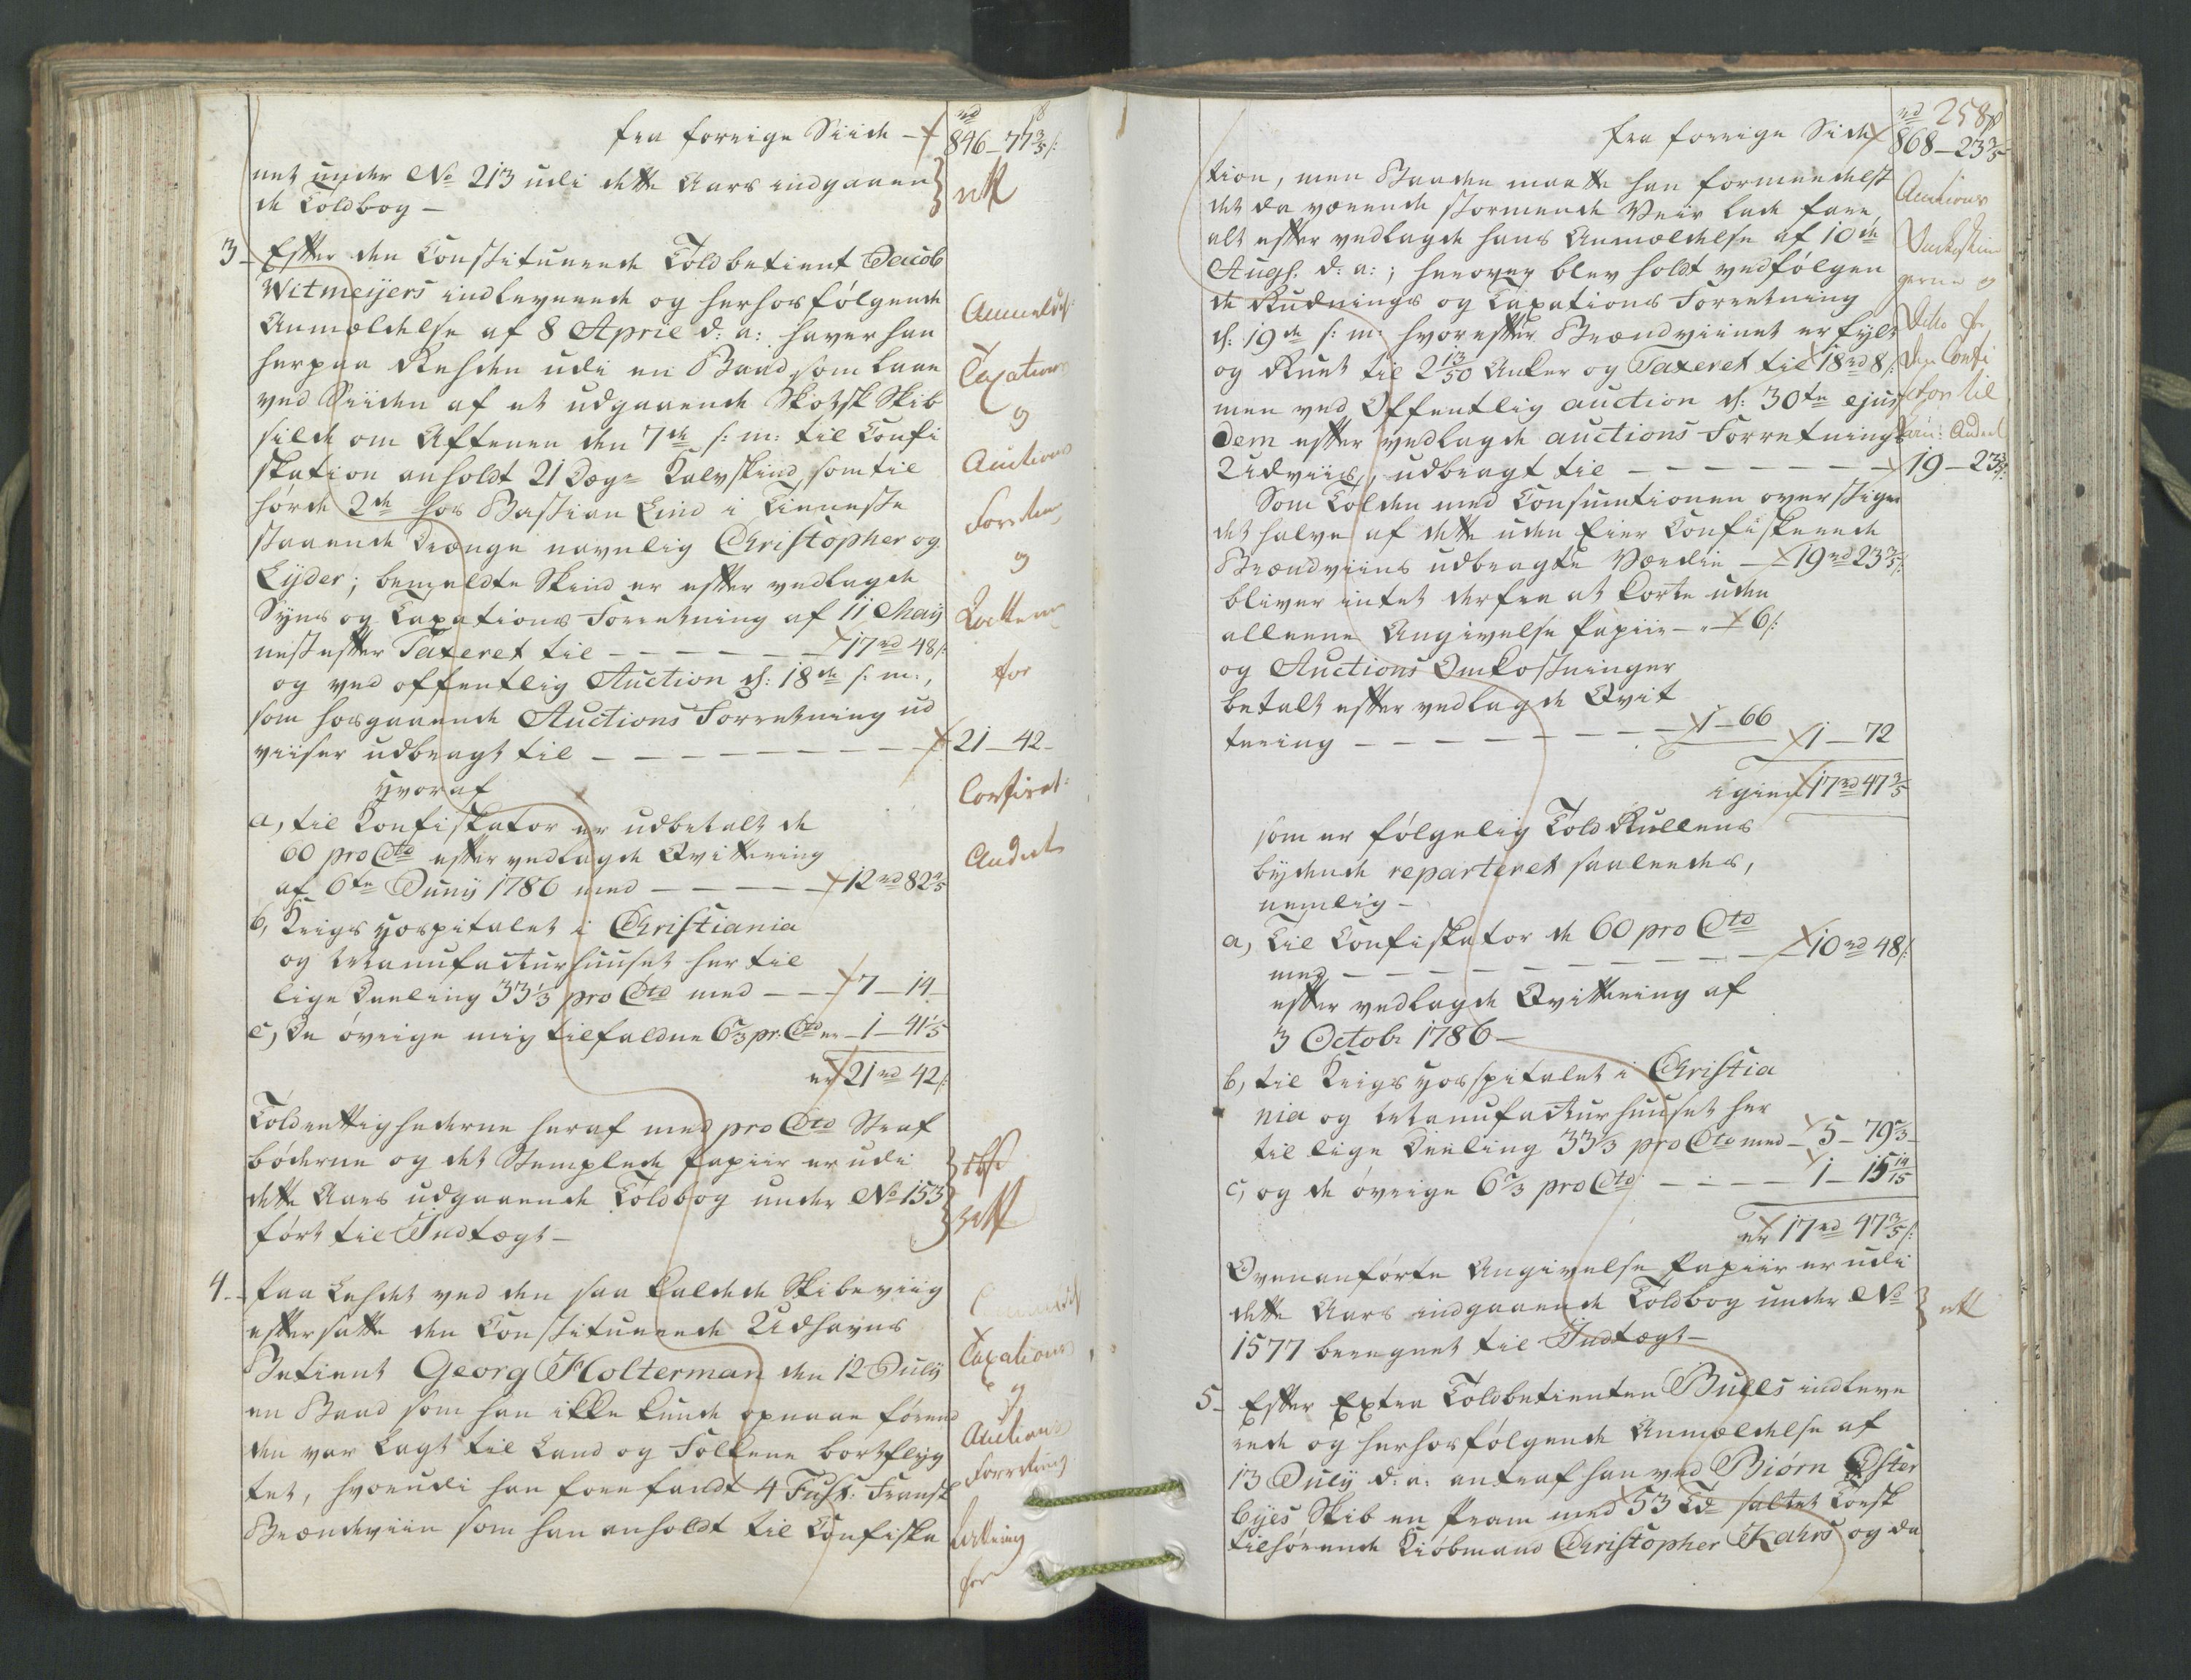 fra forrige Siide – 846 – 77 3/5 s:
net under No 213 udi dette Aars indgaaen
de Toldbog –
rett
3 – Efter den Constituerende Toldbetient Jacob
Witmeyers indleverede og herhos følgende
Anmældelse af 8 April d: a: haver han
herpaa Rehden udi en Baad som laae
ved Siiden af et udgaaende Skotsk Skib
silde om Aftenen den 7de s: m: til Confi
skation anholdt 21 Kalvskind som til
hørde 2de hos Bastian Lind i
staaende Drænge navnlig Christopher og
Lyder; bemeldte Skind er efter vedlagde
Syns og Taxations Forretning af 11 May
nestefter Taxeret til – – – – – 17 rd 48 s:
og ved offentlig Auction d: 18de s: m:,
som hosgaaende Auctions Forretning ud
viiser udbragt til – – – – – – – 21 – 42 –
Hvoraf
a, til Confiskator er udbetalt de
60 pro Cto efter vedlagde Qvittering
af 6te Juny 1786 med – – – – – 12 rd 82 2/5
b, Krigs Hospitalet i Christiania
og Manufacturhuuset her til
lige Deeling 33 1/3 pro Cto med – – – 7 – 14
c, De øvrige mig tilfaldne 6 2/3 pr: Cto er – 1 – 41 1/5
er 21 rd 42 s:
Toldrettighederne heraf med pro Cto Straf
bøderne og det Stemplede Papiir er udi
dette Aars udgaaende Toldbog under No 153
ført til Indtægt –
rett
4. – Paa Lehdet ved den saa kaldede Skibeviig
eftersatte den Constituerende Udhavns
Betient Georg Holterman den 12 July
en Baad som han ikke kunde opnaae førend
den var lagt til Land og Folkene bortflyg
tet, hvorudi han forefandt 4 Fuhs: Fransk
Brændeviin som han anholdt til Confiska
Anmeldel:
Taxations
og
Auctions
Forretn:
og
Qvittering
for
Confiscat:
Andeel
Taxations
og
Auctions
Forretning
Qvittering
for
258
fra forrige Side 868 – 23 3/5
tion, men Baaden maatte han formeedelst
det da værende stormende Veir lade fare,
alt efter vedlagde hans Anmældelse af 10de
Augs. d: a:; herover blev holdt vedfølgen
de Rudnings og Taxations Forretning
d: 19de s: m: hvorefter Brændviinet er fylt
og Ruet til 2 13/50 Anker og Taxeret til 18 rd 8 s:
men ved Offentlig auction d: 30te ejus
dem efter vedlagde auctions Forretnings
Udviis, udbragt til – – – – – – – 19 – 23 3/5 s:
Som Tolden med Consumtionen overstiger
det halve af dette uden Eier Confiskerede
Brændviins udbragte Værdie – 19 rd 23 3/5 s:
bliver intet derfra at korte uden
alleene Angivelse Papiir – „ – 6 s:
og Auctions Omkostninger
betalt efter vedlagde Qvit
tering – – – – – – – – 1 – 66
1 – 72
igien 17 rd 47 3/5
som er følgelig Told Rullens
bydende reparteret saaledes,
nemlig –
a, Til Confiskator de 60 pro Cto
med – – – – – – – – – 10 rd 48 s:
efter vedlagde Qvittering af
3 Octobr 1786 –
b, til Krigs Hospitalet i Christia
nia og Manufacturhuuset her
til lige Deeling 33 1/3 pro Cto med – 5 – 79 2/3 –
c, og de øvrige 6 2/3 pro Cto – – – – 1 – 15 14/15
er 17 rd 47 3/5 s:
Ovenanførte Angivelse Papiir er udi
dette Aars indgaaende Toldbog under No
1577 beregnet til Indtægt –
rett
5 – Efter Extra Toldbetienten Bulls indleve
rede og herhosfølgende Anmældelse af
13 July d: a: antraf han ved Biørn Øster
byes Skib en Pram med 53 Td saltet Torsk
tilhørende Kiøbmand Christopher Kahrs og da
Auctions
og
Ditto for
den Confi
scator til
Andeel